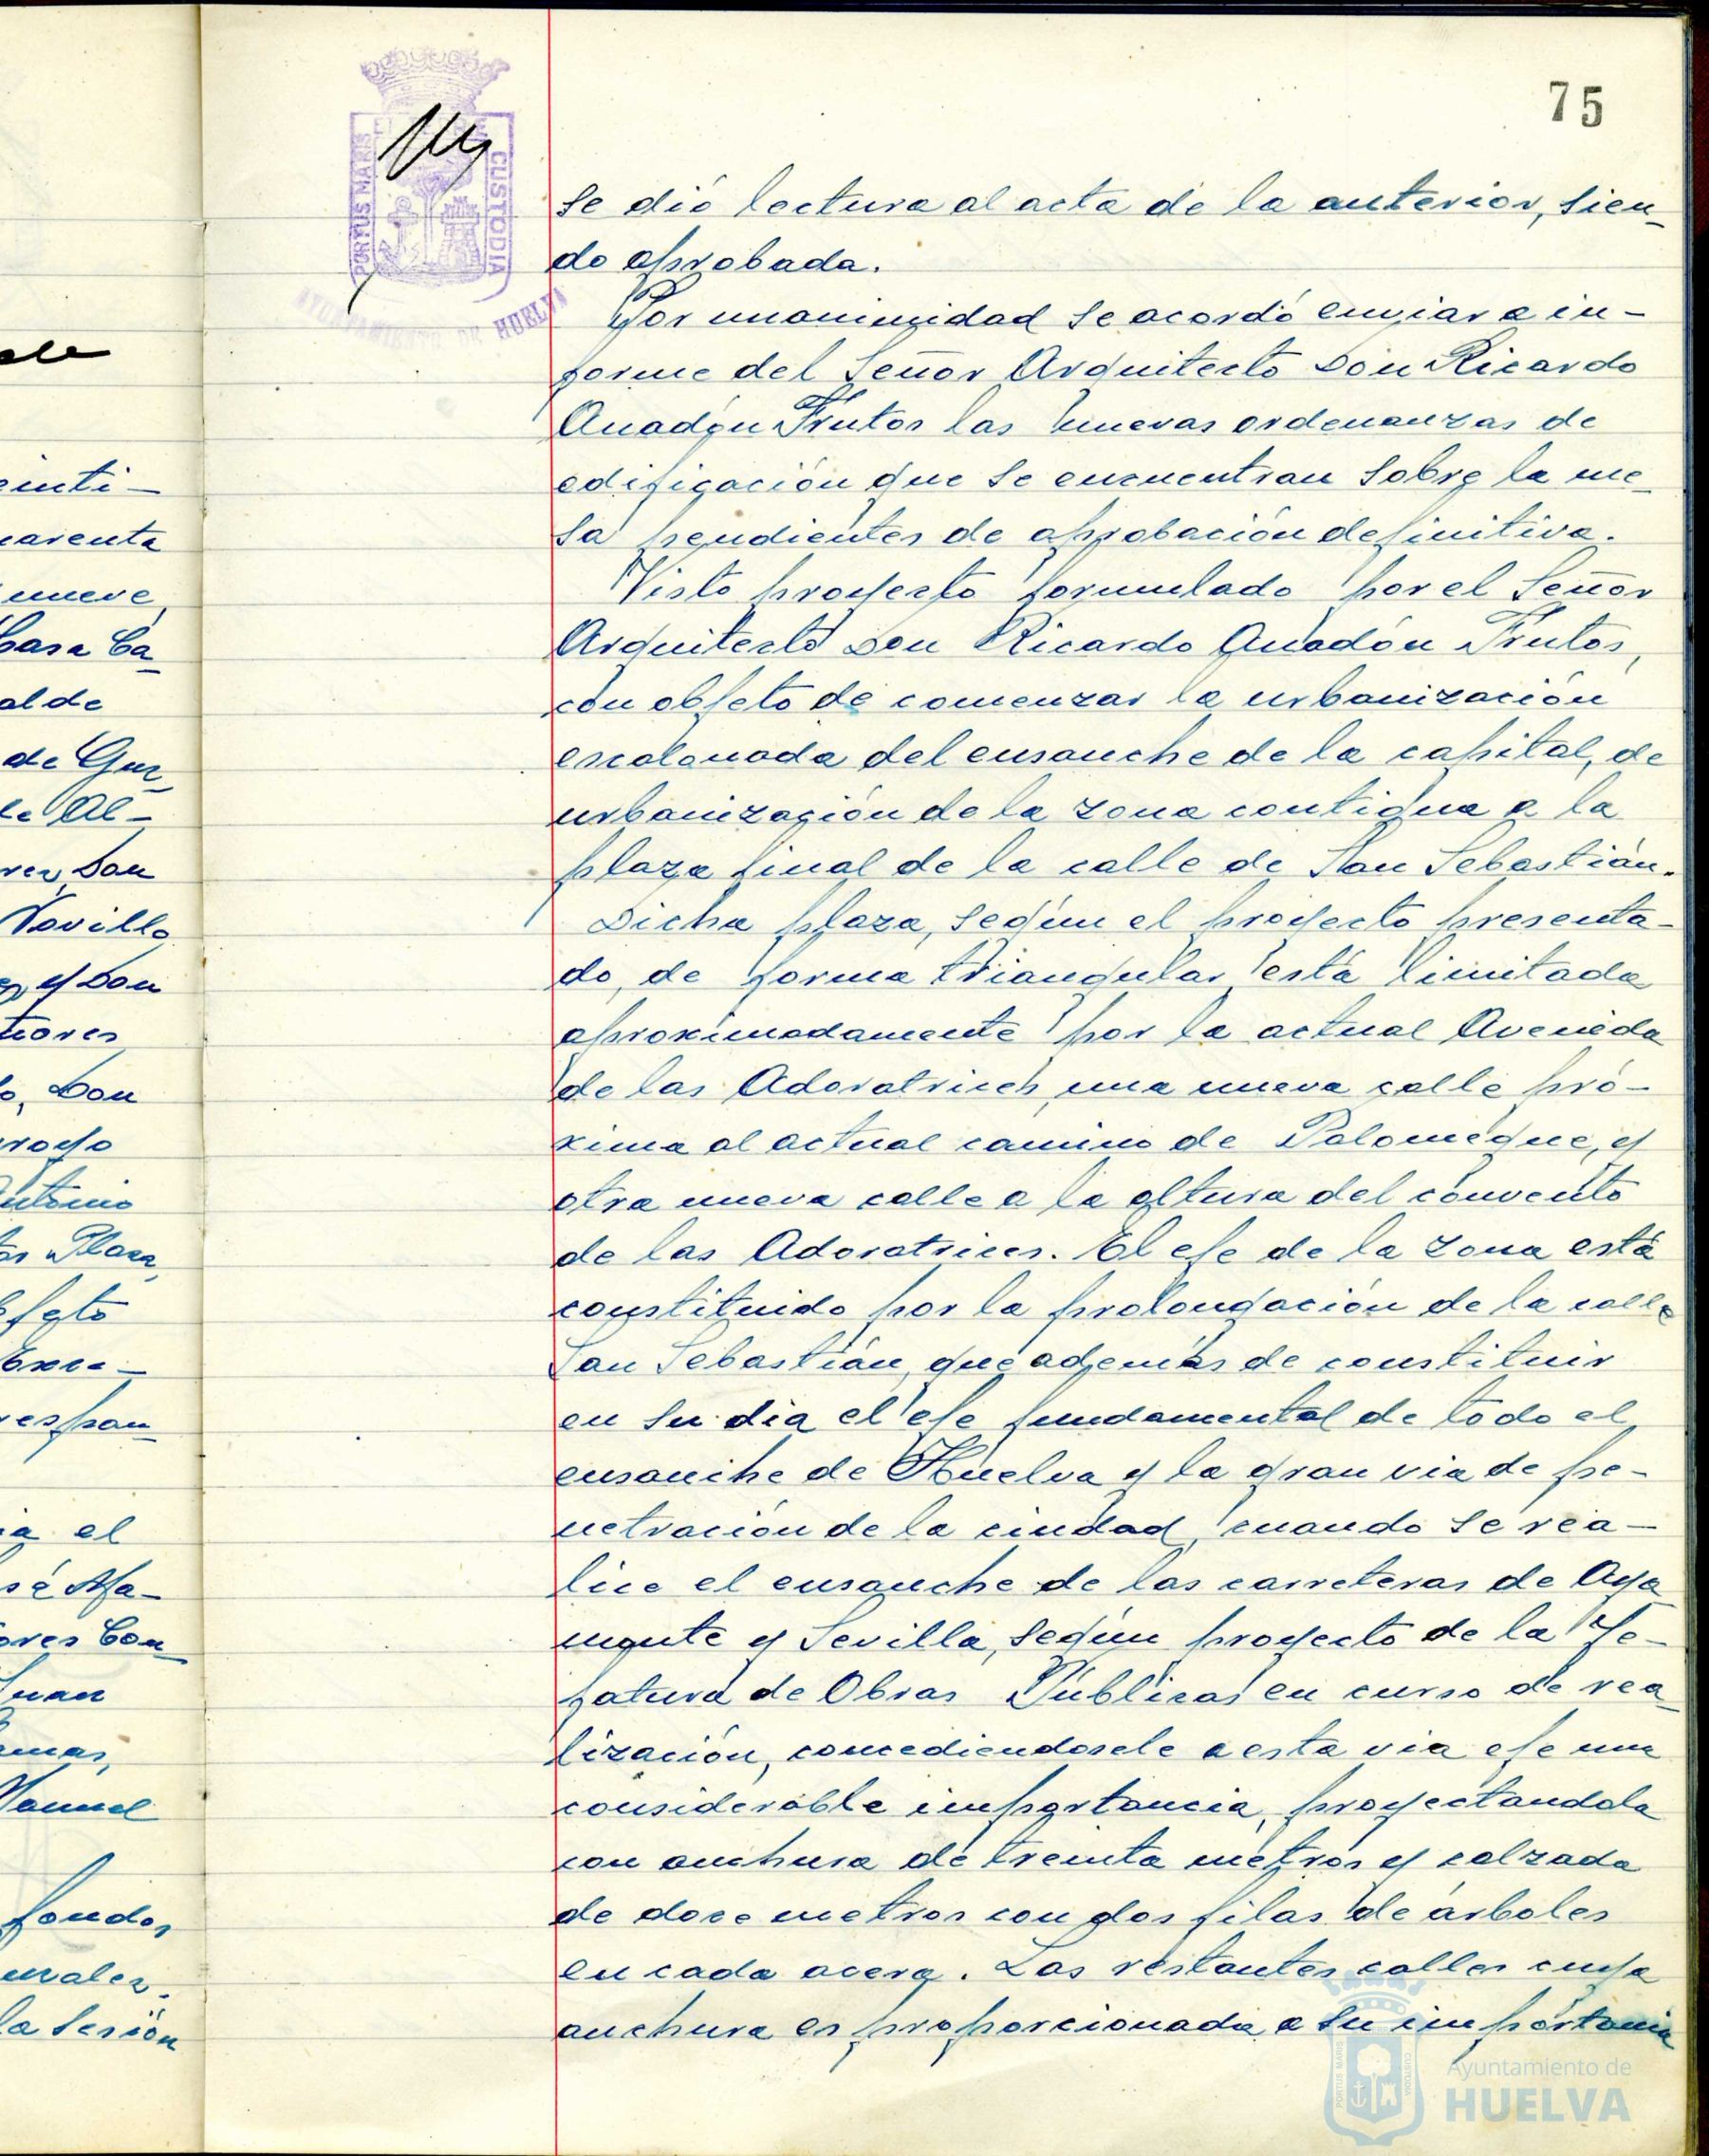 75
PORTUS MARIS ET TERRAE CUSTODIA
AYUNTAMIENTO DE HUELVA
se dió lectura al acta de la anterior, sien-
do aprobada.
Por unanimidad se acordó enviar a in-
forme del Señor Arquitecto Don Ricardo
Anadón Frutos las nuevas ordenanzas de
edificación que se encuentran sobre la me-
sa pendientes de aprobación definitiva.
Visto proyecto formulado por el Señor
Arquitecto Don Ricardo Anadón Frutos,
con objeto de comenzar la urbanización
escalonada del ensanche de la capital, de
urbanización de la zona contigua a la
plaza final de la calle de San Sebastián.
Dicha plaza, según el proyecto presenta-
do, de forma triangular está limitada
aproximadamente por la actual Avenida
de las Adoratrices, una nueva calle pró-
xima al actual camino de Palomeque, y
otra nueva calle a la altura del convento
de las Adoratrices. El eje de la zona está
constituido por la prolongación de la calle
San Sebastián, que además de constituir
en su dia el eje fundamental de todo el
ensanche de Huelva y la gran via de pe-
netración de la ciudad, cuando se rea-
lice el ensanche de las carreteras de Aya
monte y Sevilla, según proyecto de la Je-
fatura de Obras Públicas en curso de rea-
lización, concediendosele a esta via eje una
considerable importancia, proyectandola
con anchura de treinta metros y calzada
de doce metros con dos filas de árboles
en cada acera. Las restantes calles cuya
anchura es proporcionada a su importancia
einti-
uarenta
nueve
Casa Ca-
alde
de Guz-
le Al-
rez, Don
Novillo
ez y Don
tiores
lo, Don
royo
Antonio
tos Plaza,
bjeto
Exce-
respon-
ia el
sé Ma-
ores Con-
Juan
amas,
Manuel
fondos
urales.
la sesión
Ayuntamiento de
HUELVA